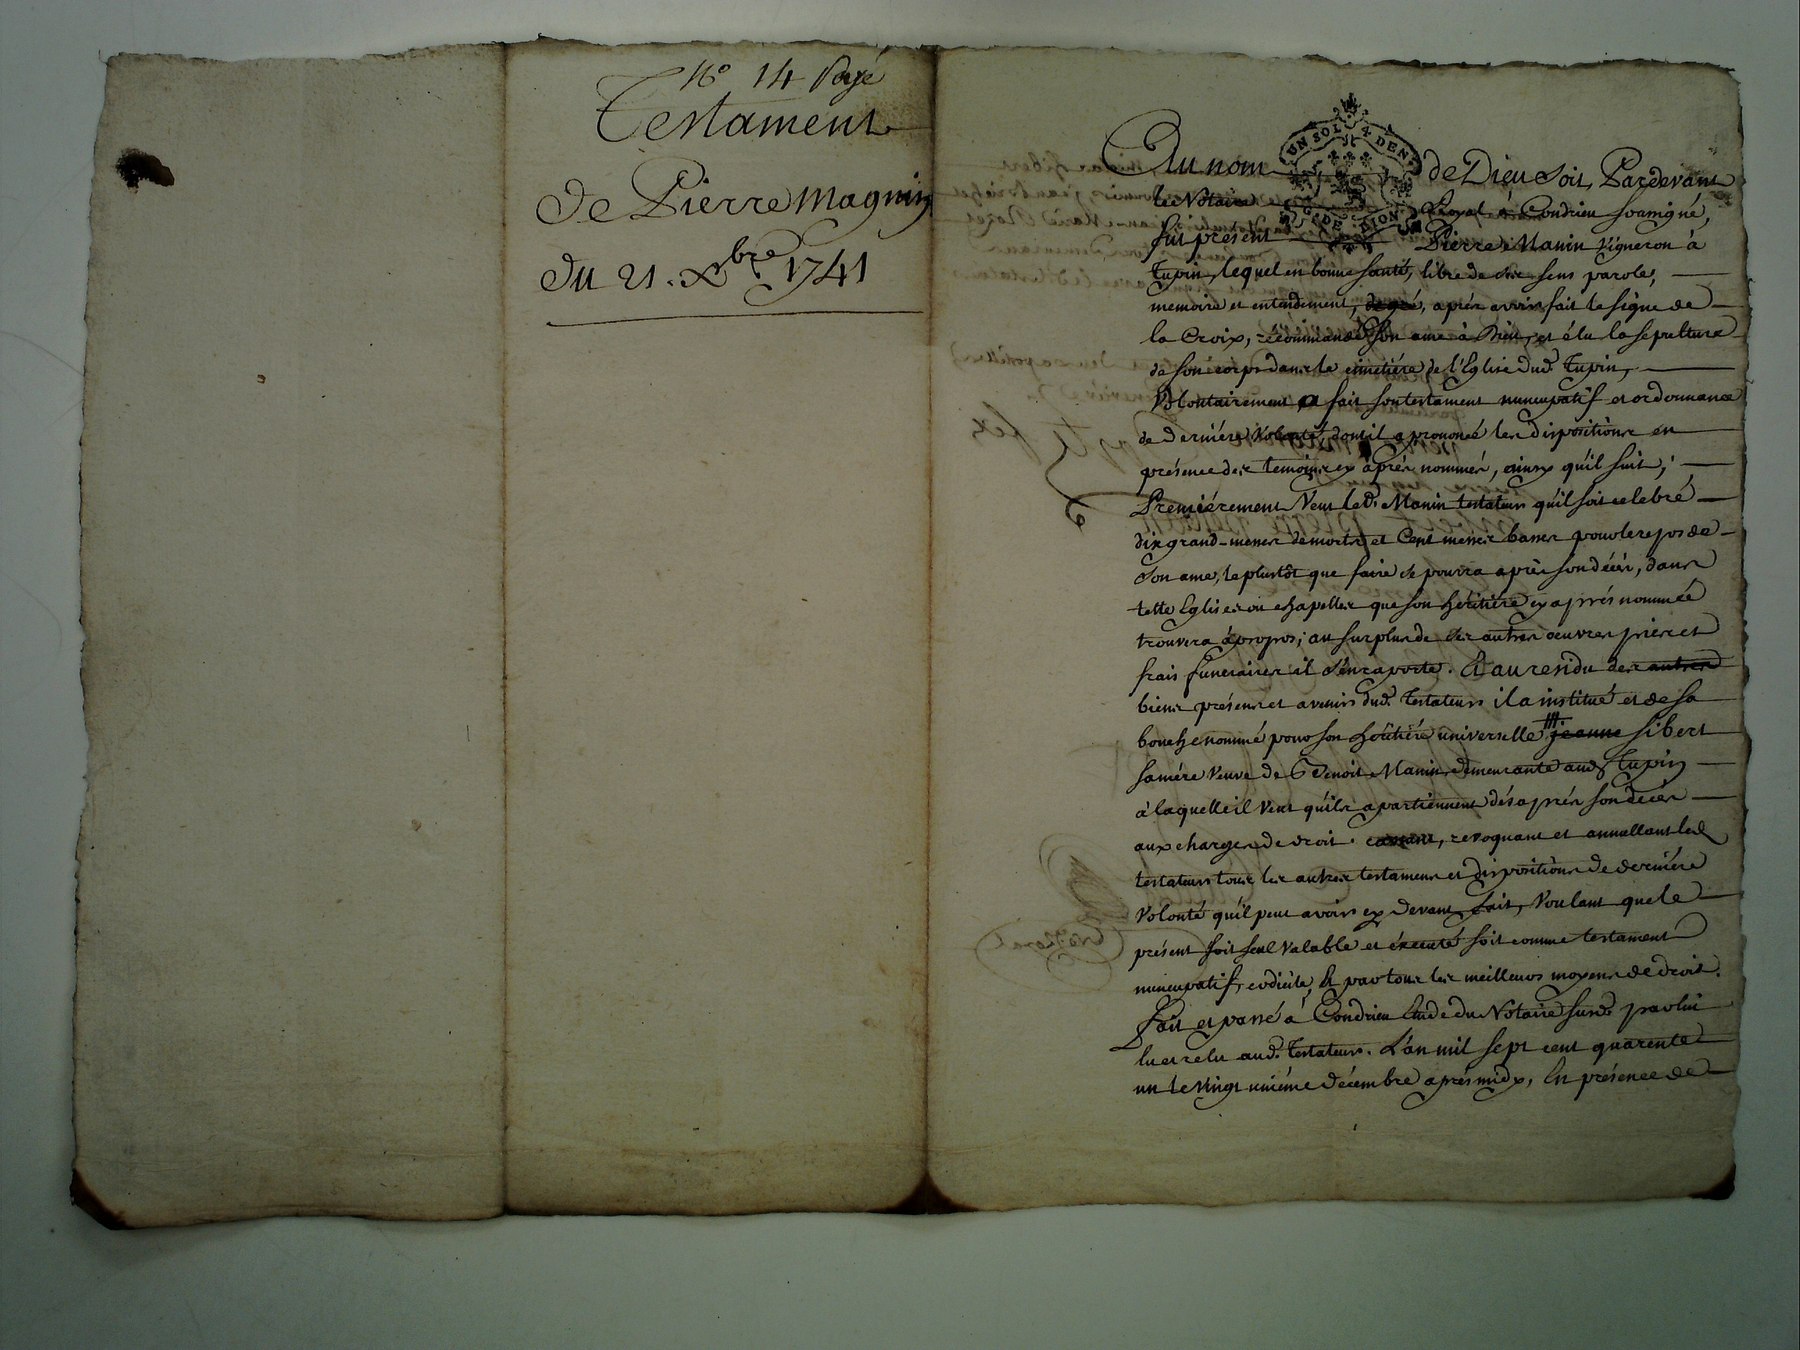 N° 14 Payé
Testament
De Pierre Magnin
Du 21. Xbre 1741
UN SOL 4 DEN
G. DE LION
Au nom de Dieu soit, Pardevant
le Notaire Royal à Condrieu soussigné,
fut présent Pierre Manin Vigneron à
Tupin, lequel en bonne santé, libre de ses sens parole,
memoire et entendement, de gré, aprés avoir fait le signe de
la Croix, recommandé son ame à Dieu, et élu la sepulture
de son corps dans le cimetiére de l'Eglise dud. Tupin,
Volontairement a fait son testament nuncupatif et ordonnance
de derniére Volonté, dont il a prononcé les dispositions en
présence des temoins cy aprés nommés, ainsy qu'il suit;
Premiérement Veut led. Manin testateur qu'il soit celebré
dix grand-messes de morts et Cent messes basses pour le repos de
son ame, le plustôt que faire se pourra aprés son décés, dans
telle Eglises ou chapelles que son héritiére cy aprés nommée
trouvera à propos; au surplus de ses autres œuvres pies et
frais funeraires il s'en raporte. Et au residu des autres
biens présens et avenir dud. Testateur il a institué et de sa
bouche nommé pour son héritiére universelle jeanne sibert
sa mére Veuve de Benoit Manin demeurante aud. Tupin
à laquelle il Veut qu'ils apartiennent dés aprés son decés
aux charges de droit. cassant, revoquant et annullant led.
testateur tous les autres testamens et dispositions de derniére
Volonté qu'il peut avoir cy devant fait, Voulant que le
présent soit seul Valable et éxecuté soit comme testament
nuncupatif, codicile, et par tous les meilleurs moyens de droit.
Fait et passé à Condrieu Etude du Notaire susd. par lui
lu et relu aud. Testateur. L'an mil sept cent quarente
un le Vingt uniéme décembre aprés midy, En présence de